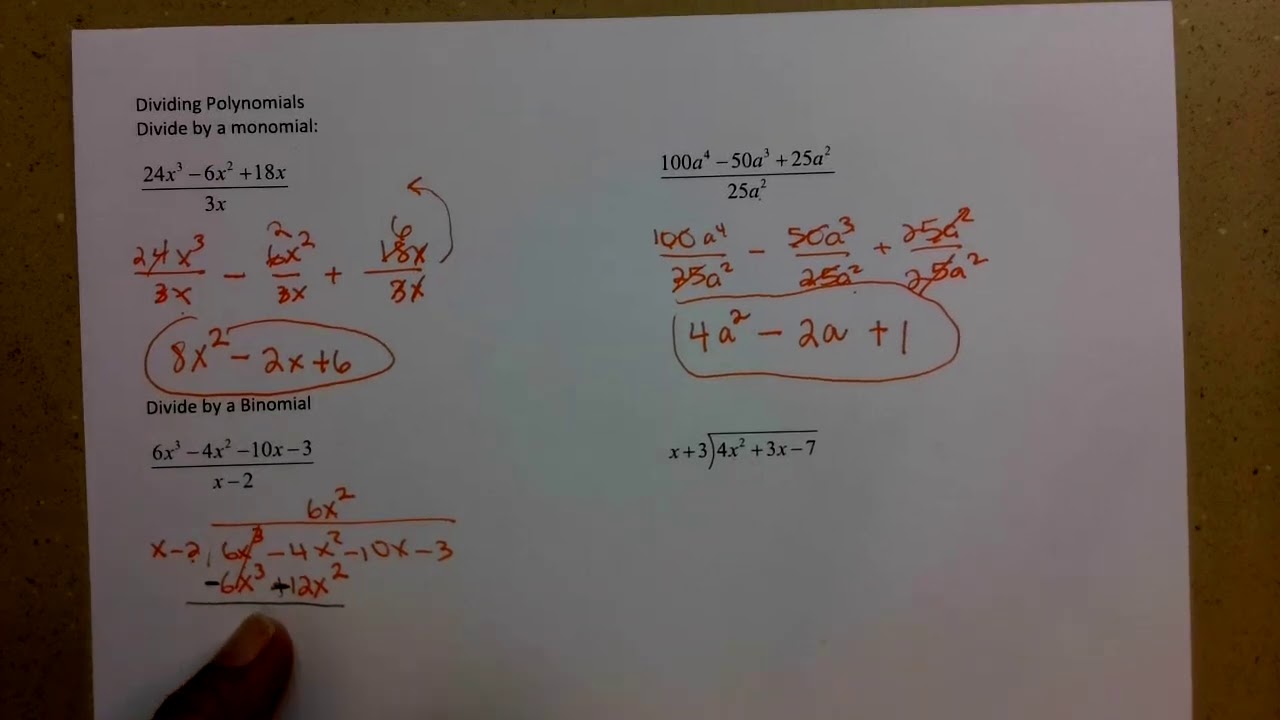 Dividing Polynomials
Divide by a monomial:
24x³ − 6x² + 18x
3x
24x³ − 6x² + 18x
3x 3x 3x
2 6
8x² − 2x + 6
100a⁴ − 50a³ + 25a²
25a²
100a⁴ − 50a³ + 25a²
25a² 25a² 25a²
4a² − 2a + 1
Divide by a Binomial
6x³ − 4x² − 10x − 3
x − 2
6x²
x − 2 6x³ − 4x² − 10x − 3
−6x³ +12x²
x + 3)4x² + 3x − 7